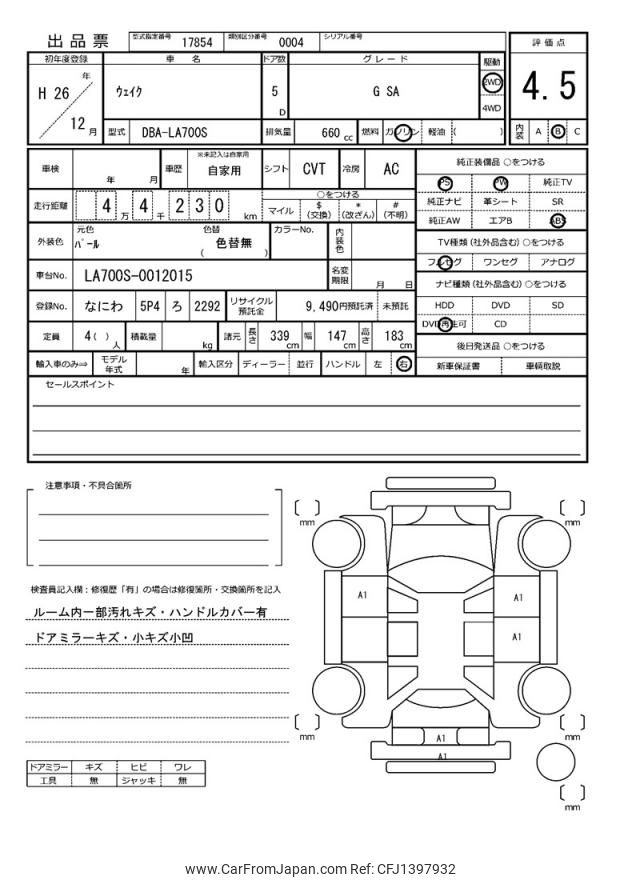 出品票 型式指定番号 17854 類別区分番号 0004 シリアル番号
初年度登録 車名 ドア数 グレード 駆動 評価点
H 26 年 12 月 ウェイク 5 D G SA 2WD 4WD 4.5
型式 DBA-LA700S 排気量 660 cc 燃料 ガソリン 軽油 ( ) 内装 A B C
車検 年 月 車歴 ※未記入は自家用 自家用 シフト CVT 冷房 AC
走行距離 4 万 4 千 2 3 0 km ○をつける
マイル $ (交換) * (改ざん) # (不明)
外装色 元色 パール 色替 色替無 ( ) カラーNo. 内装色
車台No. LA700S-0012015 名変期限 月 日
登録No. なにわ 5P4 ろ 2292 リサイクル預託金 9,490円預託済 未預託
定員 4 ( ) 人 積載量 kg 諸元 長さ 339 cm 幅 147 cm 高さ 183 cm
輸入車のみ⇒ モデル年式 年 輸入区分 ディーラー 並行 ハンドル 左 右
純正装備品 ○をつける
PS PW 純正TV
純正ナビ 革シート SR
純正AW エアB ABS
TV種類 (社外品含む) ○をつける
フルセグ ワンセグ アナログ
ナビ種類 (社外品含む) ○をつける
HDD DVD SD
DVD再生可 CD
後日発送品 ○をつける
新車保証書 車輌取説
セールスポイント
注意事項・不具合箇所
検査員記入欄：修復歴「有」の場合は修復箇所・交換箇所を記入
ルーム内一部汚れキズ・ハンドルカバー有
ドアミラーキズ・小キズ小凹
ドアミラー キズ ヒビ ワレ
工具 無 ジャッキ 無
mm mm
A1 A1
A1
mm mm
A1
A1
mm
www.CarFromJapan.com Ref: CFJ1397932